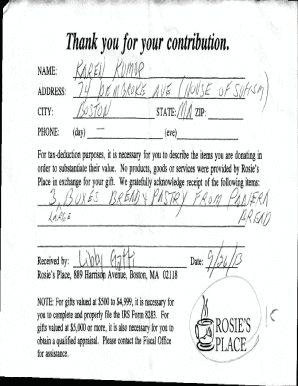 Thank you for your contribution.
NAME: KAREN KUMAR
ADDRESS: 74 PEMBROKE AVE (HOUSE OF SUFISM)
CITY: BOSTON STATE: MA ZIP:
PHONE: (day) — (eve)
For tax-deduction purposes, it is necessary for you to describe the items you are donating in
order to substantiate their value. No products, goods or services were provided by Rosie's
Place in exchange for your gift. We gratefully acknowledge receipt of the following items:
3, BOXES BREAD & PASTRY FROM PANERA
LARGE BREAD
Received by: Libby Date: 9/26/13
Rosie's Place, 889 Harrison Avenue, Boston, MA 02118
NOTE: For gifts valued at $500 to $4,999, it is necessary for
you to complete and properly file the IRS Form 8283. For
gifts valued at $5,000 or more, it is also necessary for you to
obtain a qualified appraisal. Please contact the Fiscal Office
for assistance.
ROSIE'S
PLACE